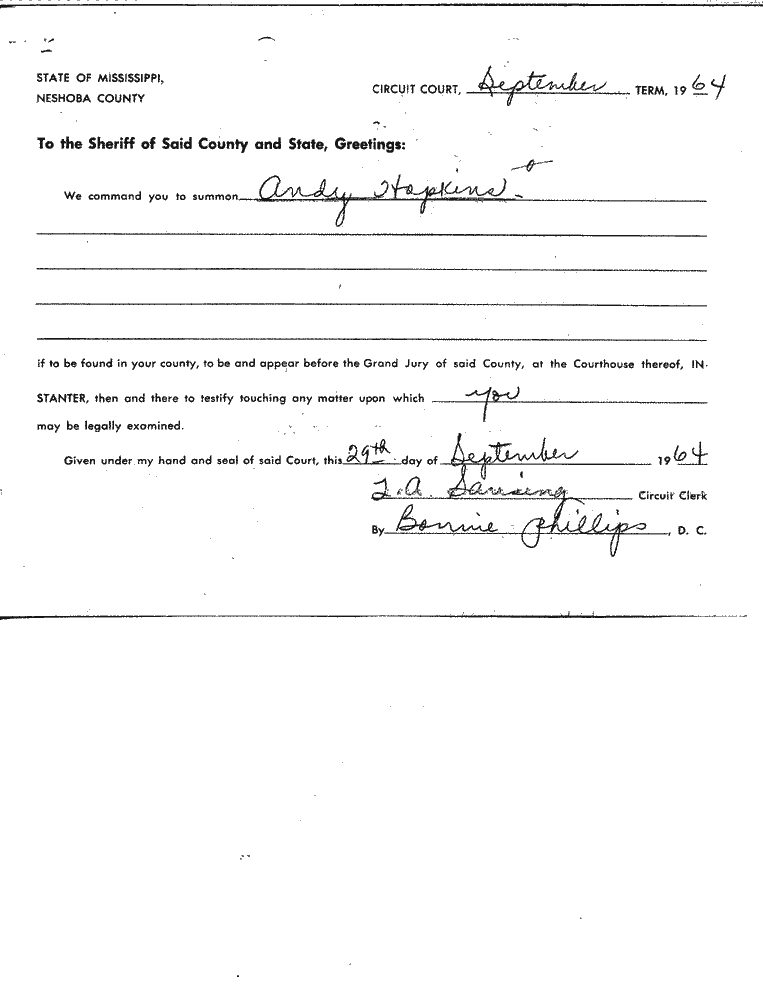 STATE OF MISSISSIPPI,
NESHOBA COUNTY
CIRCUIT COURT, September TERM, 1964
To the Sheriff of Said County and State, Greetings:
We command you to summon Andy Hopkins
if to be found in your county, to be and appear before the Grand Jury of said County, at the Courthouse thereof, IN-
STANTER, then and there to testify touching any matter upon which you
may be legally examined.
Given under my hand and seal of said Court, this 29th day of September 1964
Circuit Clerk
By Bonnie Phillips, D. C.